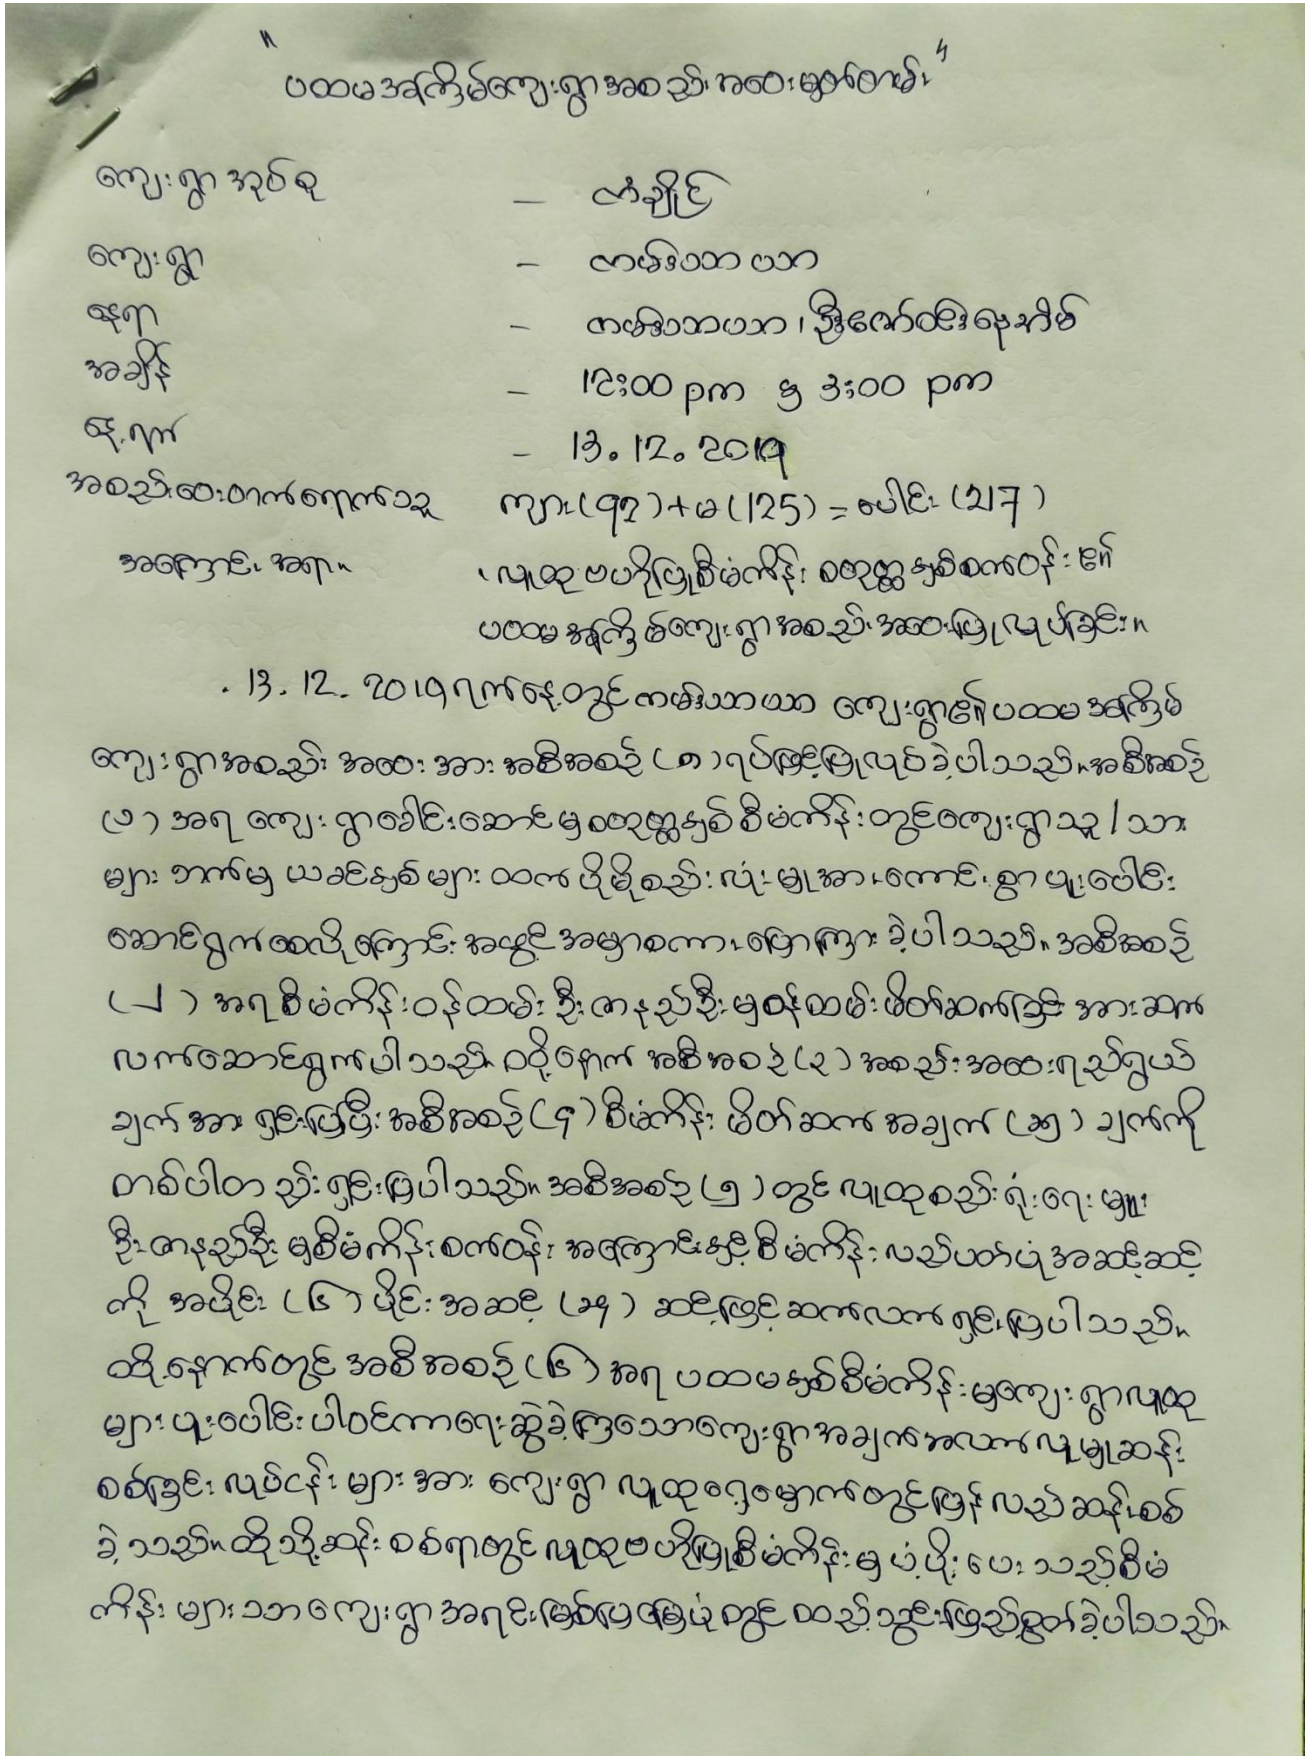 "ပထမအကြိမ်ကျေးရွာအစည်းအဝေးမှတ်တမ်း"
ကျေးရွာအုပ်စု – ကံချိုင့်
ကျေးရွာ – ကမ်းသာယာ
နေရာ – ကမ်းသာယာ၊ ဦးဇော်ဝင်းနေအိမ်
အချိန် – 12:00 pm မှ 3:00 pm
နေ့ရက် – 13.12.2019
အစည်းဝေးတက်ရောက်သူ ကျား(92)+မ(125)=ပေါင်း(217)
အကြောင်းအရာ။ ၊လူထုဗဟိုပြုစီမံကိန်း စတုတ္ထနှစ်စက်ဝန်း၏
ပထမအကြိမ်ကျေးရွာအစည်းအဝေးပြုလုပ်ခြင်း။
13.12.2019ရက်နေ့တွင်ကမ်းသာယာ ကျေးရွာ၏ပထမအကြိမ်
ကျေးရွာအစည်းအဝေးအား အစီအစဉ်(၈)ရပ်ဖြင့်ပြုလုပ်ခဲ့ပါသည်။အစီအစဉ်
(၁)အရ ကျေးရွာခေါင်းဆောင်မှစတုတ္ထနှစ်စီမံကိန်းတွင်ကျေးရွာသူ/သား
များဘက်မှ ယခင်နှစ်များထက်ပိုမိုစည်းလုံးမှုအားကောင်းစွာပူးပေါင်း
ဆောင်ရွက်စေလိုကြောင်းအဖွင့်အမှာစကားပြောကြားခဲ့ပါသည်။အစီအစဉ်
(၂)အရစီမံကိန်းဝန်ထမ်းဦးဇာနည်ဦးမှဝန်ထမ်းမိတ်ဆက်ခြင်းအားဆက်
လက်ဆောင်ရွက်ပါသည်။၎င်းတို့နောက် အစီအစဉ်(၃)အစည်းအဝေးရည်ရွယ်
ချက်အား ရှင်းပြပြီးအစီအစဉ်(၄)စီမံကိန်း မိတ်ဆက်အချက်(၁၅)ချက်ကို
တစ်ပါတည်းရှင်းပြပါသည်။အစီအစဉ်(၅)တွင်လူထုစည်းရုံးရေးမှူး
ဦးဇာနည်ဦးမှစီမံကိန်းစက်ဝန်းအကြောင်းနှင့်စီမံကိန်းလည်ပတ်ပုံအဆင့်ဆင့်
ကို အပိုင်း(၆)ပိုင်းအဆင့်(၁၄)ဆင့်ဖြင့်ဆက်လက်ရှင်းပြပါသည်။
ထို့နောက်တွင်အစီအစဉ်(၆)အရ ပထမနှစ်စီမံကိန်းမှကျေးရွာလူထု
များပူးပေါင်းပါဝင်ကာရေးဆွဲခဲ့ကြသောကျေးရွာအချက်အလက်လူမှုဆန်း
စစ်ခြင်းလုပ်ငန်းများအား ကျေးရွာလူထုရှေ့မှောက်တွင်ပြန်လည်ဆန်းစစ်
ခဲ့သည်။ထိုသို့ဆန်းစစ်ရာတွင်လူထုဗဟိုပြုစီမံကိန်းမှပံ့ပိုးပေးသည့်စီမံ
ကိန်းများသာကျေးရွာအရင်းအမြစ်ပြမြေပုံတွင်ထည့်သွင်းဖြည့်စွက်ခဲ့ပါသည်။